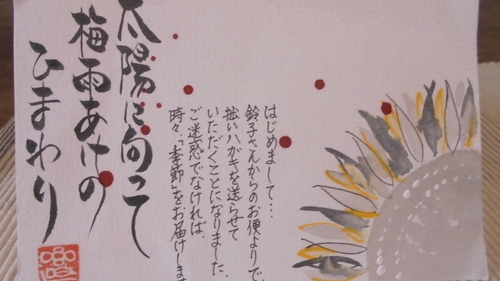 太陽に向って
梅雨あけの
ひまわり
はじめまして…
鈴子さんからのお便よりで
拙いハガキを送らせて
いただくことになりました。
ご迷惑でなければ、
時々、「季節」をお届けしま